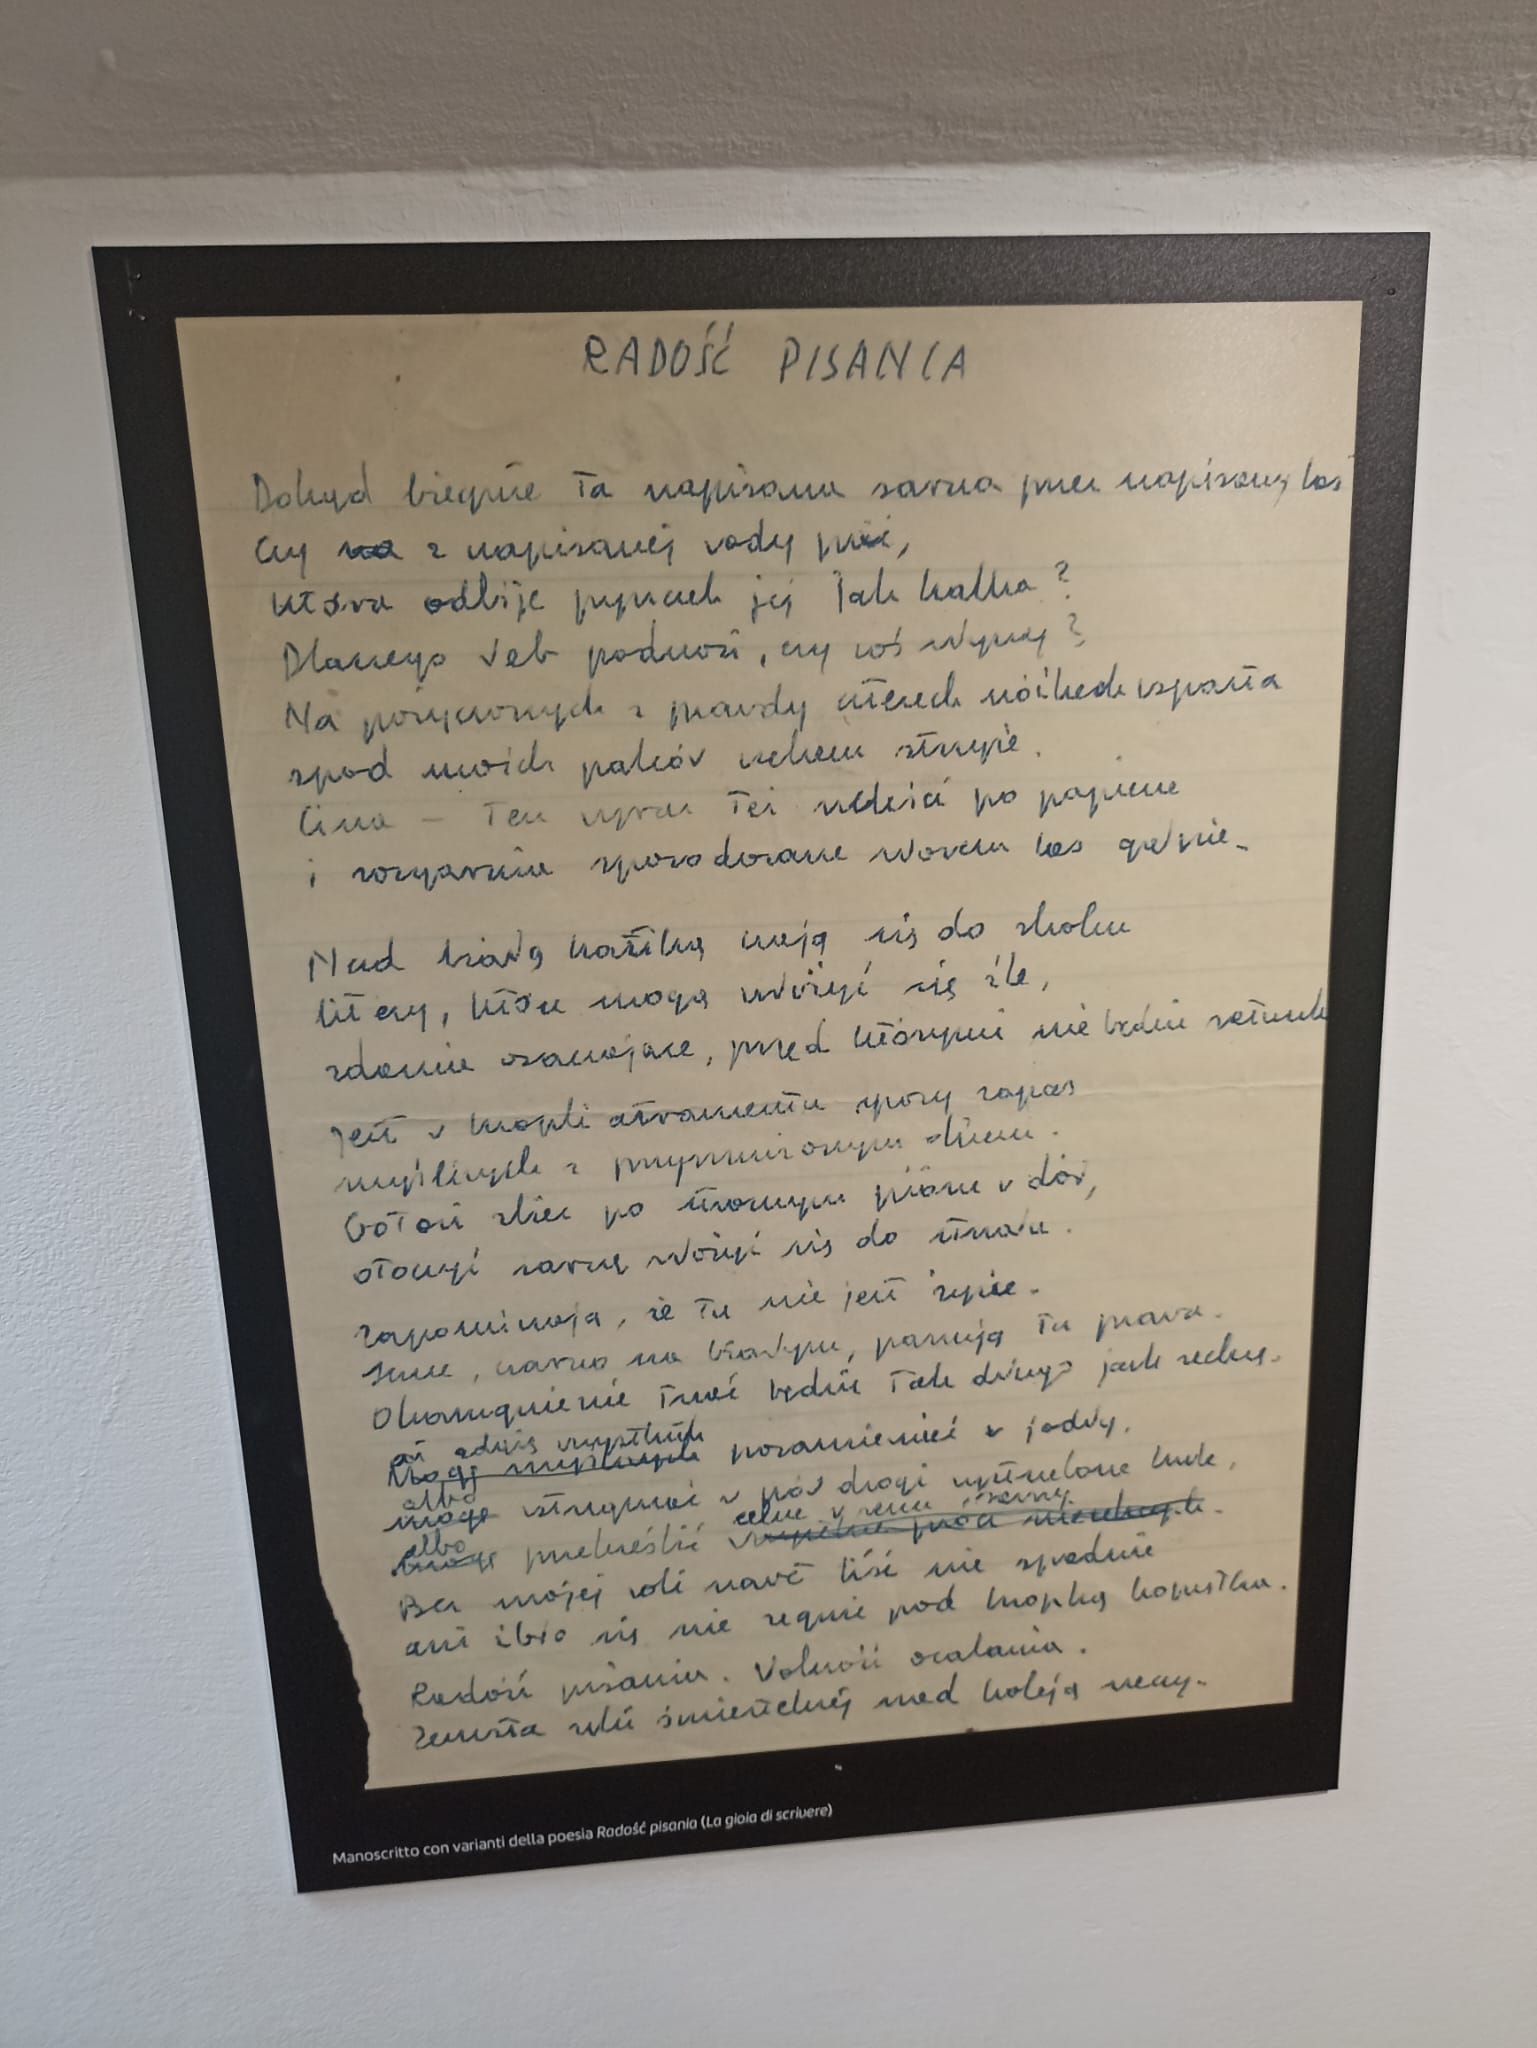 RADOŚĆ PISANIA
Dokąd biegnie ta napisana sarna przez napisany las
Czy na z napisanej wody pić,
która odbije pyszczek jej jak kalka?
Dlaczego łeb podnosi, czy coś słyszy?
Na pożyczonych z prawdy czterech nóżkach wsparta
spod moich palców uchem strzyże.
Cisza – ten wyraz też szeleści po papierze
i rozgarnia spowodowane słowem las gałęzie.
Nad białą kartką czają się do skoku
litery, które mogą ułożyć się źle,
zdania osaczające, przed którymi nie będzie ratunku
Jest w kropli atramentu spory zapas
myśliwych z przymrużonym okiem.
Gotowi zbiec po stromym piórze w dół,
otoczyć sarnę złożyć się do strzału.
Zapominają, że tu nie jest życie.
Inne, czarno na białym, panują tu prawa.
Okamgnienie trwać będzie tak długo jak zechcę.
wszystkich
Mogę myśliwych pozamieniać w jodły,
albo
mogę wstrzymać w pół drogi wystrzelone kule,
albo celne w serce sarny
mogę przekreślić
Bez mojej woli nawet liść nie spadnie
ani źbło się nie zegnie pod kropką kopytka.
Radość pisania. Wolność ocalania.
Zemsta ręki śmiertelnej nad koleją rzeczy.
Manoscritto con varianti della poesia Radość pisania (La gioia di scrivere)